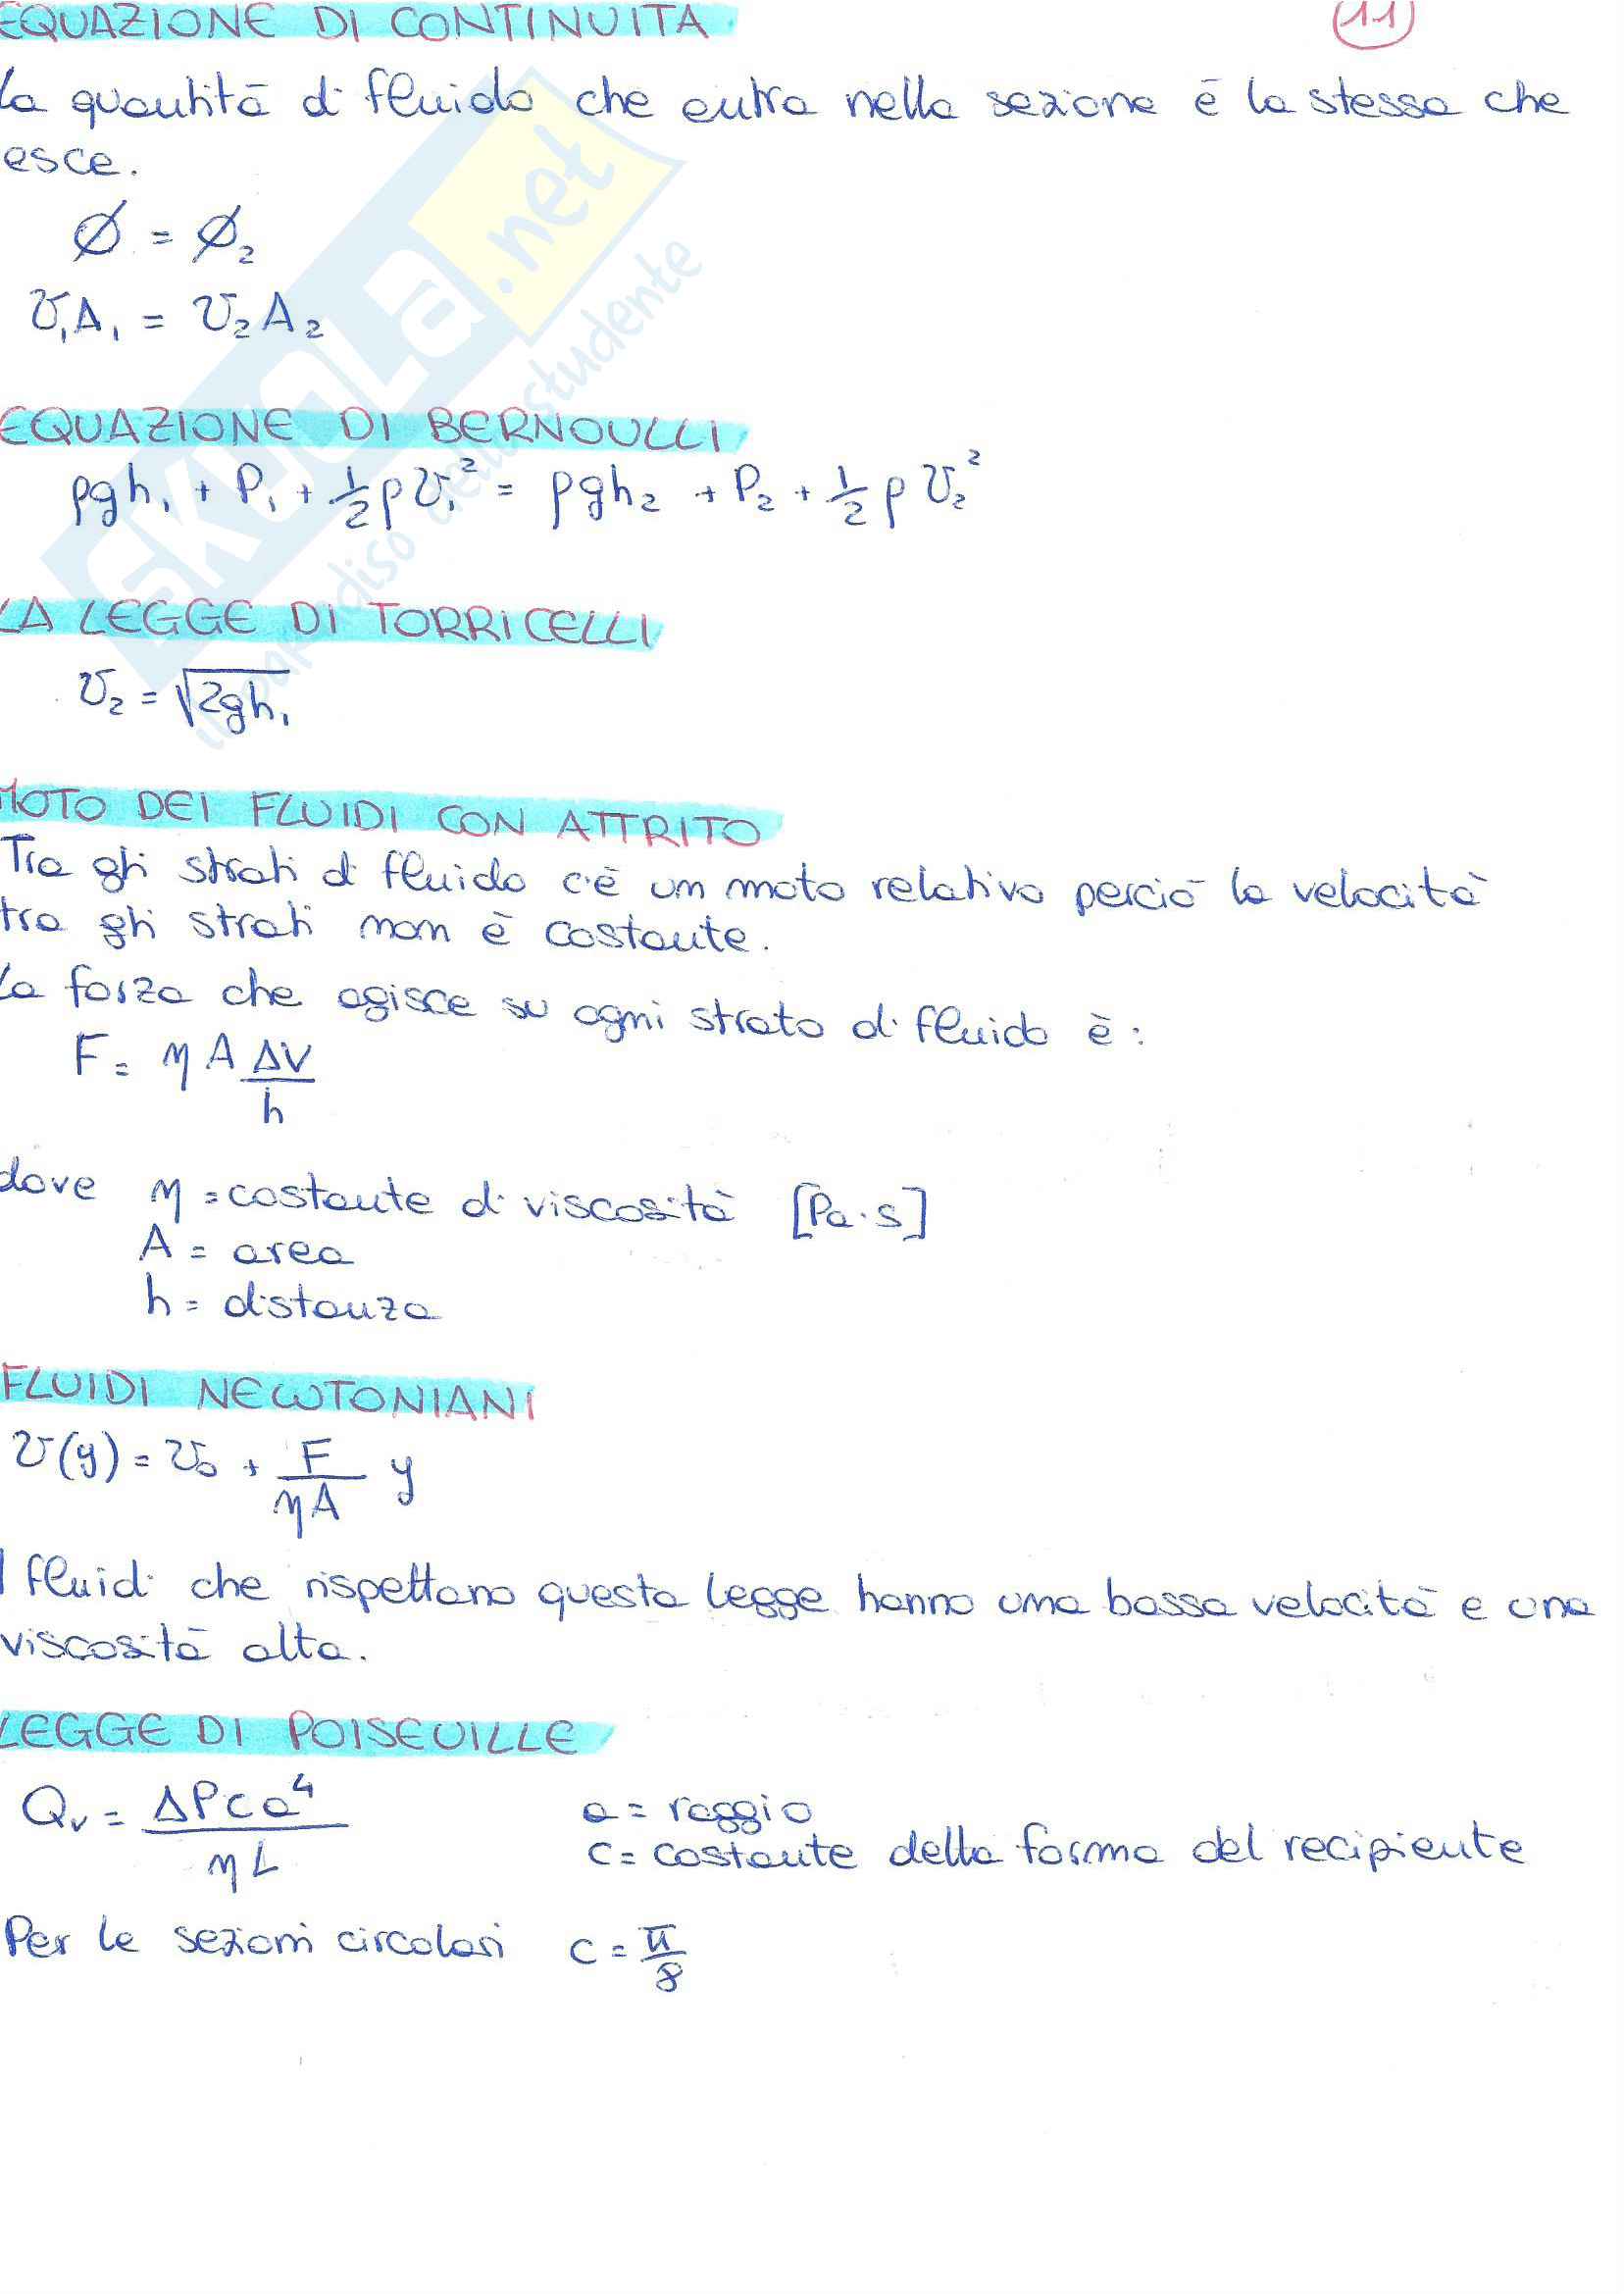 EQUAZIONE DI CONTINUITA
(11)
La quantità di fluido che entra nella sezione è la stessa che
esce.
Ø = Ø₂
v₁A₁ = v₂A₂
EQUAZIONE DI BERNOULLI
ρgh₁ + P₁ + ½ρv₁² = ρgh₂ + P₂ + ½ρv₂²
LA LEGGE DI TORRICELLI
v₂ = √2gh₁
MOTO DEI FLUIDI CON ATTRITO
Tra gli strati di fluido c'è un moto relativo perciò la velocità
tra gli strati non è costante.
La forza che agisce su ogni strato di fluido è:
F = η A ΔV/h
dove η = costante di viscosità [Pa·s]
A = area
h = distanza
FLUIDI NEWTONIANI
v(y) = v₀ + F/ηA y
I fluidi che rispettano questa legge hanno una bassa velocità e una
viscosità alta.
LEGGE DI POISEUILLE
Qᵥ = ΔPca⁴/ηL
a = raggio
c = costante della forma del recipiente
Per le sezioni circolari c = π/8
SKUOLA.net
il paradiso dello studente